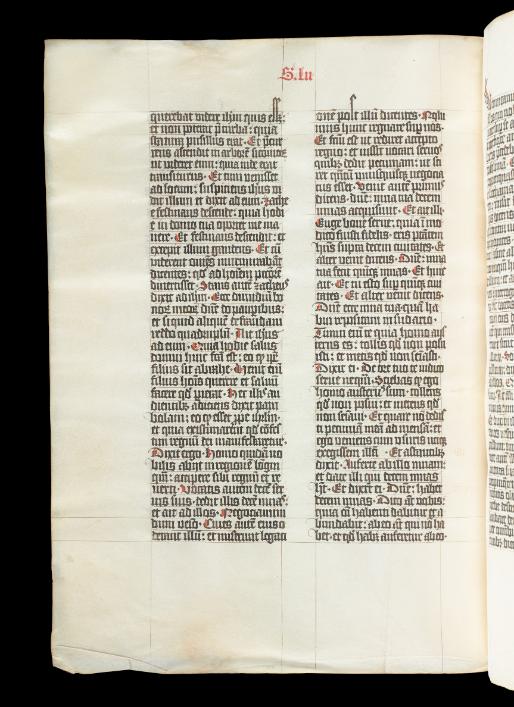 S. lu
querebat videre ih̄m quis eſſꝫ:
et non poterat p̄ turba: quia
ſtatura puſillus erat. Et p̄cur
rens aſcendit in arborē ſicomorū
ut videret eum: quia inde erat
tranſiturus. Et cum veniſſet
ad locum: ſuſpiciens ih̄us vi
dit illum et dixit ad eum. Zache
e feſtinans deſcende: quia hodi
e in domo tua oportet me ma
nere. Et feſtinans deſcendit: et
excepit illum gaudens. Et cū
viderent om̄es murmurabāt
dicentes: qd̄ ad hoīem pctōrē
diuertiſſet. Stans autē zacheus
dixit ad dn̄m. Ecce dimidiū bo
norꝫ meorꝫ dn̄e do pauperibus:
et ſi quid aliquē defraudaui
reddo quadruplū. Ait ih̄ſus
ad eum. Quia hodie ſalus
domui huic fc̄a eſt: eo qp̄ ip̄e
filius ſit abrahe. Venit em̄
filius hoīs querere et ſaluū
facere qd̄ perierat. Hec illis au
dientibꝫ adiciens dixit para
bolam: eo qp̄ eſſet ꝓpe ihr̄lm:
et quia exiſtimarent qd̄ cōfeſ
tim regnū dei manifeſtaretur.
Dixit ergo. Homo quidā no
bilis abijt in regionē longin
quā: accipere ſibi regnū et re
uerti. Vocatis autem decē ſer
uis ſuis: dedit illis decē mnas:
et ait ad illos. Negociamini
dum venio. Ciues autē eius o
derant illū: et miſerunt legati
onē poſt illū dicentes. Nolu
mus hunc regnare ſup nos.
Et fc̄m eſt ut rediret accepto
regno: et iuſſit vocari ſeruos
quibꝫ dedit pecuniam: ut ſci
ret quātū unuſquiſqꝫ negocia
tus eſſet. Venit autē primus
dicens. Dn̄e: mna tua decem
mnas acquiſiuit. Et ait illi.
Euge bone ſerue: quia ī mo
dico fuiſti fidelis: eris p̄tatem
habens ſupra decem ciuitates. Et
alter venit dicens. Dn̄e: mna
tua fecit quīqꝫ mnas. Et huic
ait. Et tu eſto ſup quīqꝫ ciui
tates. Et alter venit dicens.
Dn̄e ecce mna tua quā ha
bui repoſitam in ſudario.
Timui em̄ te quia homo auſ
terus es: tollis qd̄ non poſui
ſti: et metis qd̄ non ſemīaſti.
Dixit ei. De ore tuo te iudico
ſerue nequā. Sciebas qp̄ ego
homo auſterus ſum: tollens
qd̄ non poſui: et metens qd̄
non ſemīaui. Et quare nō dediſ
ti pecuniā meā ad menſā: et
ego veniens cum uſuris utiqꝫ
exegiſſem illā. Et aſtantibꝫ
dixit. Auferte ab illo mnam:
et date illi qui decem mnas
hꝫ. Et dixerūt ei. Dn̄e: habet
decem mnas. Dico aūt vobis:
quia oī habenti dabitur et a
bundabit: ab eo aūt qui nō ha
bet: et qd̄ habꝫ auferetur ab eo.